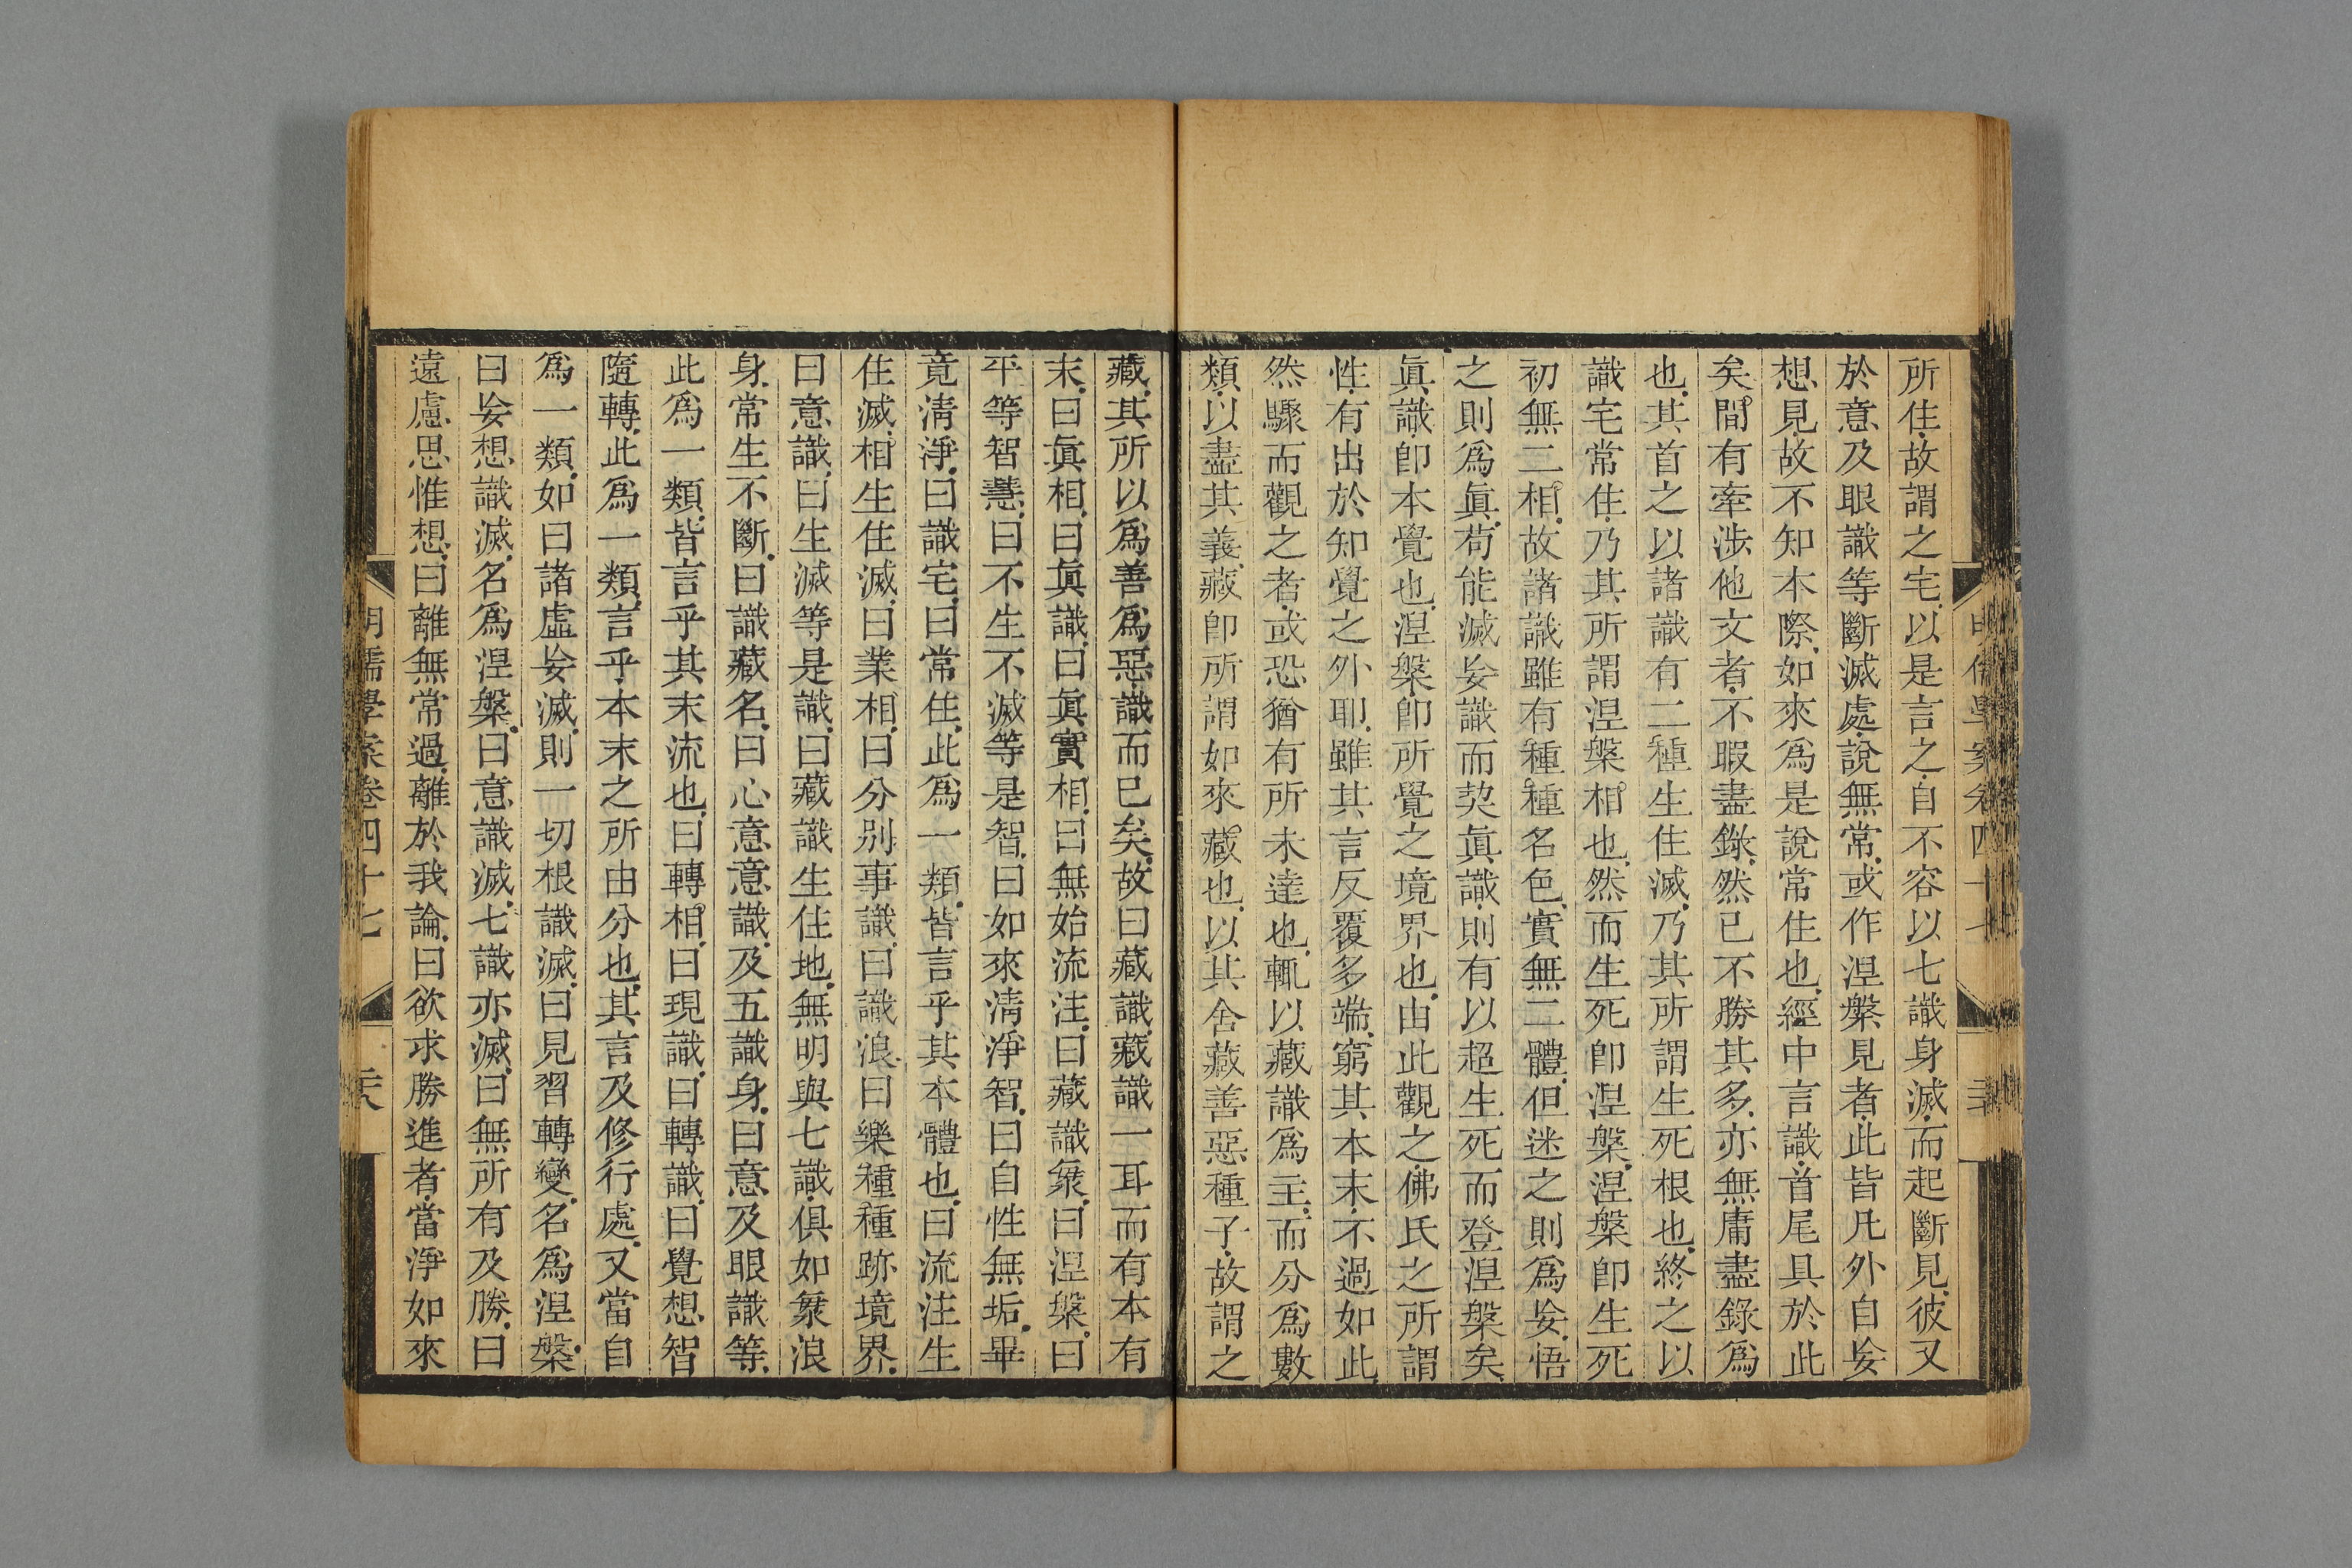 所住故謂之宅以是言之自不容以七識身滅而起斷見彼又
於意及眼識等斷滅處說無常或作涅槃見者此皆凡外自妄
想見故不知本際如來爲是說常住也經中言識首尾具於此
矣間有牽涉他文者不暇盡錄然已不勝其多亦無庸盡錄爲
也其首之以諸識有二種生住滅乃其所謂生死根也終之以
識宅常住乃其所謂涅槃相也然而生死卽涅槃涅槃卽生死
初無二相故諸識雖有種種名色實無二體但迷之則爲妄悟
之則爲眞苟能滅妄識而契眞識則有以超生死而登涅槃矣
眞識卽本覺也涅槃卽所覺之境界也由此觀之佛氏之所謂
性有出於知覺之外耶雖其言反覆多端窮其本末不過如此
然驟而觀之者或恐猶有所未達也輒以藏識爲主而分爲數
類以盡其義藏卽所謂如來藏也以其含藏善惡種子故謂之
藏其所以爲善爲惡識而已矣故曰藏識藏識一耳而有本有
末曰眞相曰眞識曰眞實相曰無始流注曰藏識衆曰涅槃曰
平等智慧曰不生不滅等是智曰如來淸淨智曰自性無垢畢
竟淸淨曰識宅曰常住此爲一類皆言乎其本體也曰流注生
住滅相生住滅曰業相曰分別事識曰識浪曰樂種種跡境界
曰意識曰生滅等是識曰藏識生住地無明與七識俱如衆浪
身常生不斷曰識藏名曰心意意識及五識身曰意及眼識等
此爲一類皆言乎其末流也曰轉相曰現識曰轉識曰覺想智
隨轉此爲一類言乎本末之所由分也其言及修行處又當自
爲一類如曰諸虛妄滅則一切根識滅曰見習轉變名爲涅槃
曰妄想識滅名爲涅槃曰意識滅七識亦滅曰無所有及勝曰
遠慮思惟想曰離無常過離於我論曰欲求勝進者當淨如來
明儒學案卷四十七